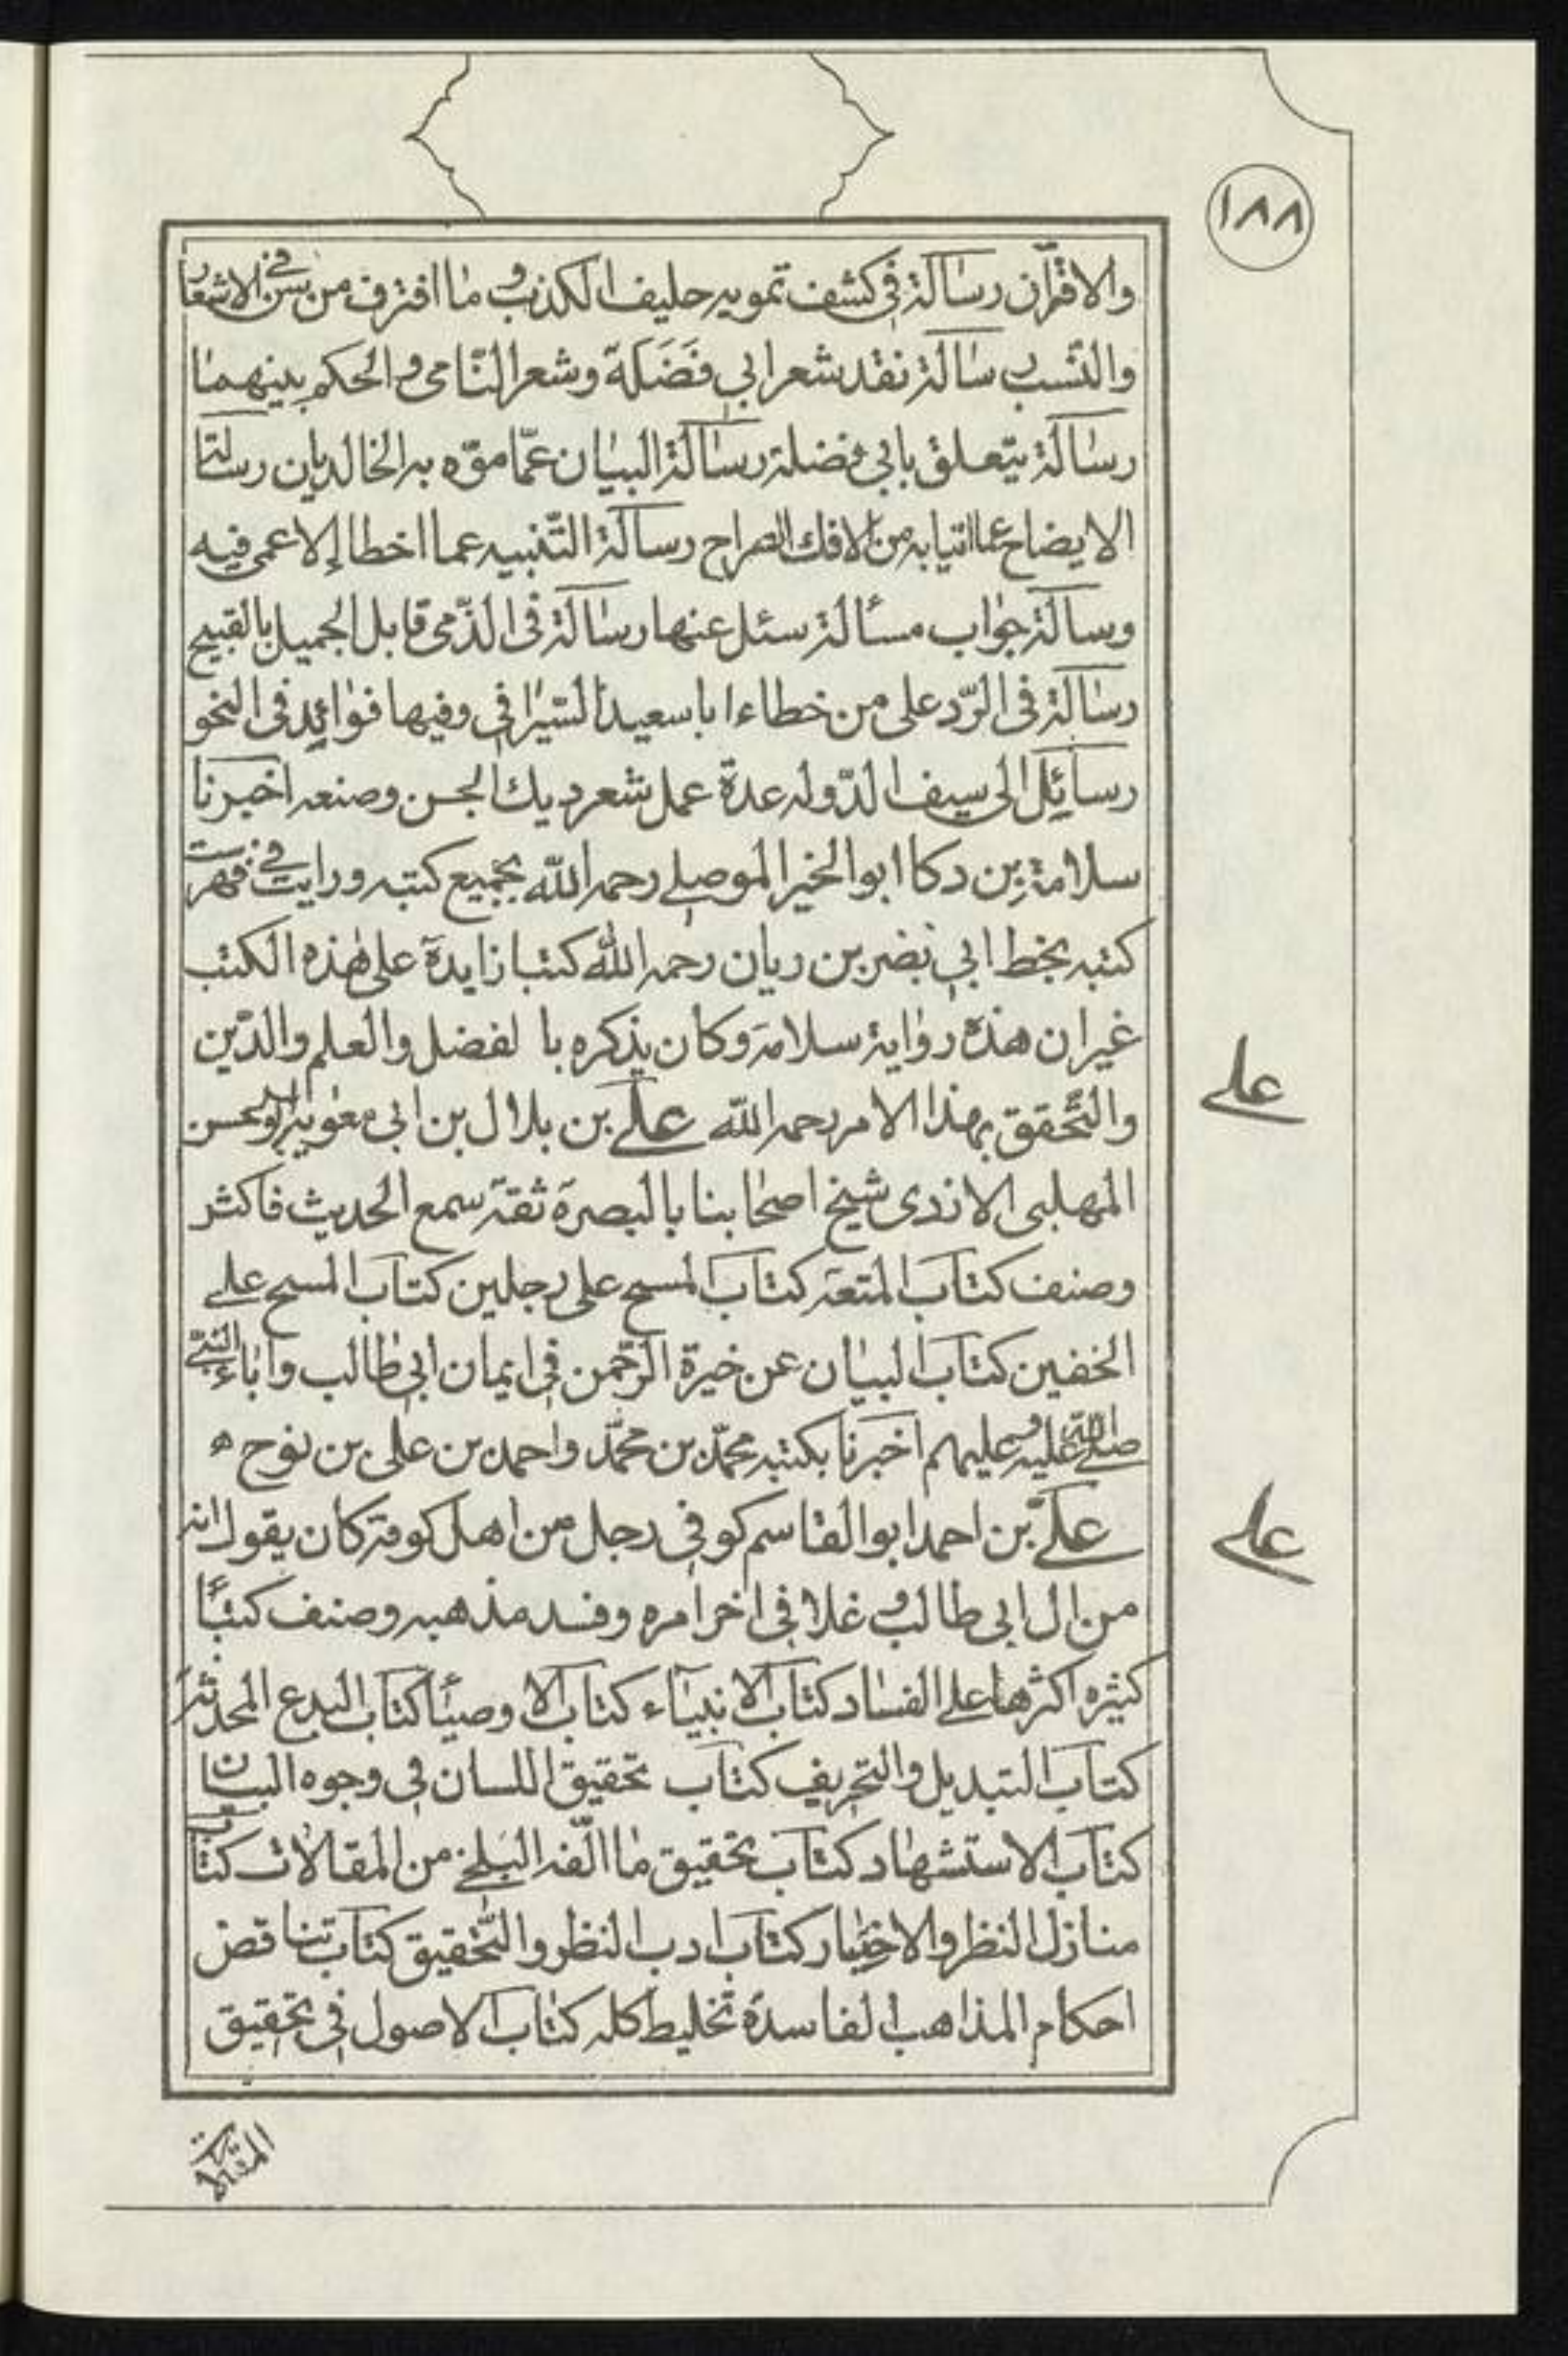 ١٨٨
والاقران رسالة في كشف تمويه حليف الكذب و ما افترف من في الاشعار
والنسب رسالة نقد شعر ابي فضلة وشعر النامي والحكم بينهما
رسالة يتعلق بابي فضلة رسالة البيان عمّا موّه به الخالديان رسالة
الايضاح عما اتيا به من الافك الصراح رسالة التنبيه عما اخطا الاعمى فيه
وسالة جواب مسألة سئل عنها رسالة في الذمي قابل الجميل بالقبيح
رسالة في الرّد على من خطاء ابا سعيد السيرافي وفيها فوائد في النحو
رسائل الى سيف الدّوله عدة عمل شعر ديك الجن وصنعه اخبرنا
سلامة بن دكا ابوالخير الموصلي رحمه الله بجميع كتبه ورايت في فهرست
كتبه بخط ابي نضر بن ريان رحمه الله كتبا زايدة على هذه الكتب
غير ان هذه رواية سلامة وكان يذكره با لفضل والعلم والدّين
والتّحقق بهذا الامر رحمه الله علي بن بلال بن ابي معوية ابوالحسن
المهلبى الازدى شيخ اصحابنا بالبصرة ثقة سمع الحديث فاكثر
وصنف كتاب المتعة كتاب المسح على رجلين كتاب المسح على
الخفين كتاب البيان عن خيرة الرّحمن في ايمان ابي طالب واباء النبي
صلى الله عليه و عليهم اخبرنا بكتبه محمّد بن محمّد واحمد بن على بن نوح ه
علي بن احمد ابوالقاسم كوفي رجل من اهل كوفة كان يقول انه
من ال ابي طالب و غلا في اخر امره وفسد مذهبه وصنف كتباً
كثيره اكثرها على الفساد كتاب الانبياء كتاب الاوصيأ كتاب البدع المحدثة
كتاب التبديل والتحريف كتاب تحقيق اللسان في وجوه البيان
كتاب الاستشهاد كتاب تحقيق ما الّفه البلخي من المقالات كتاب
منازل النظر والاختيار كتاب ادب النظر والتّحقيق كتاب تناقض
احكام المذاهب الفاسدة تخليط كله كتاب الاصول في تحقيق
المقالات
على
على